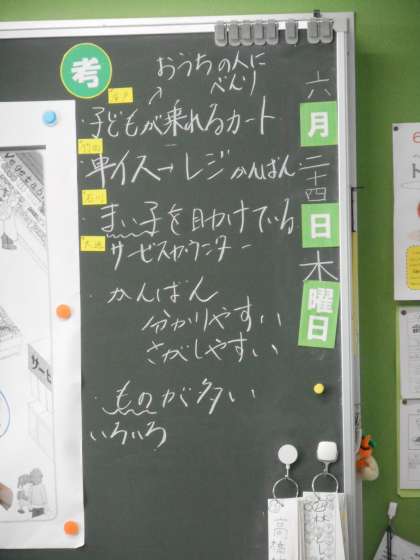 考
おうちの人に
べんり
・子どもが乗れるカート
竹田
・車イス→レジかんばん
石川
・まい子を助けている
大逸
サービスカウンター
・かんばん
分かりやすい
さがしやすい
・ものが多い
いろいろ
六月二十四日木曜日
サービ
高橋